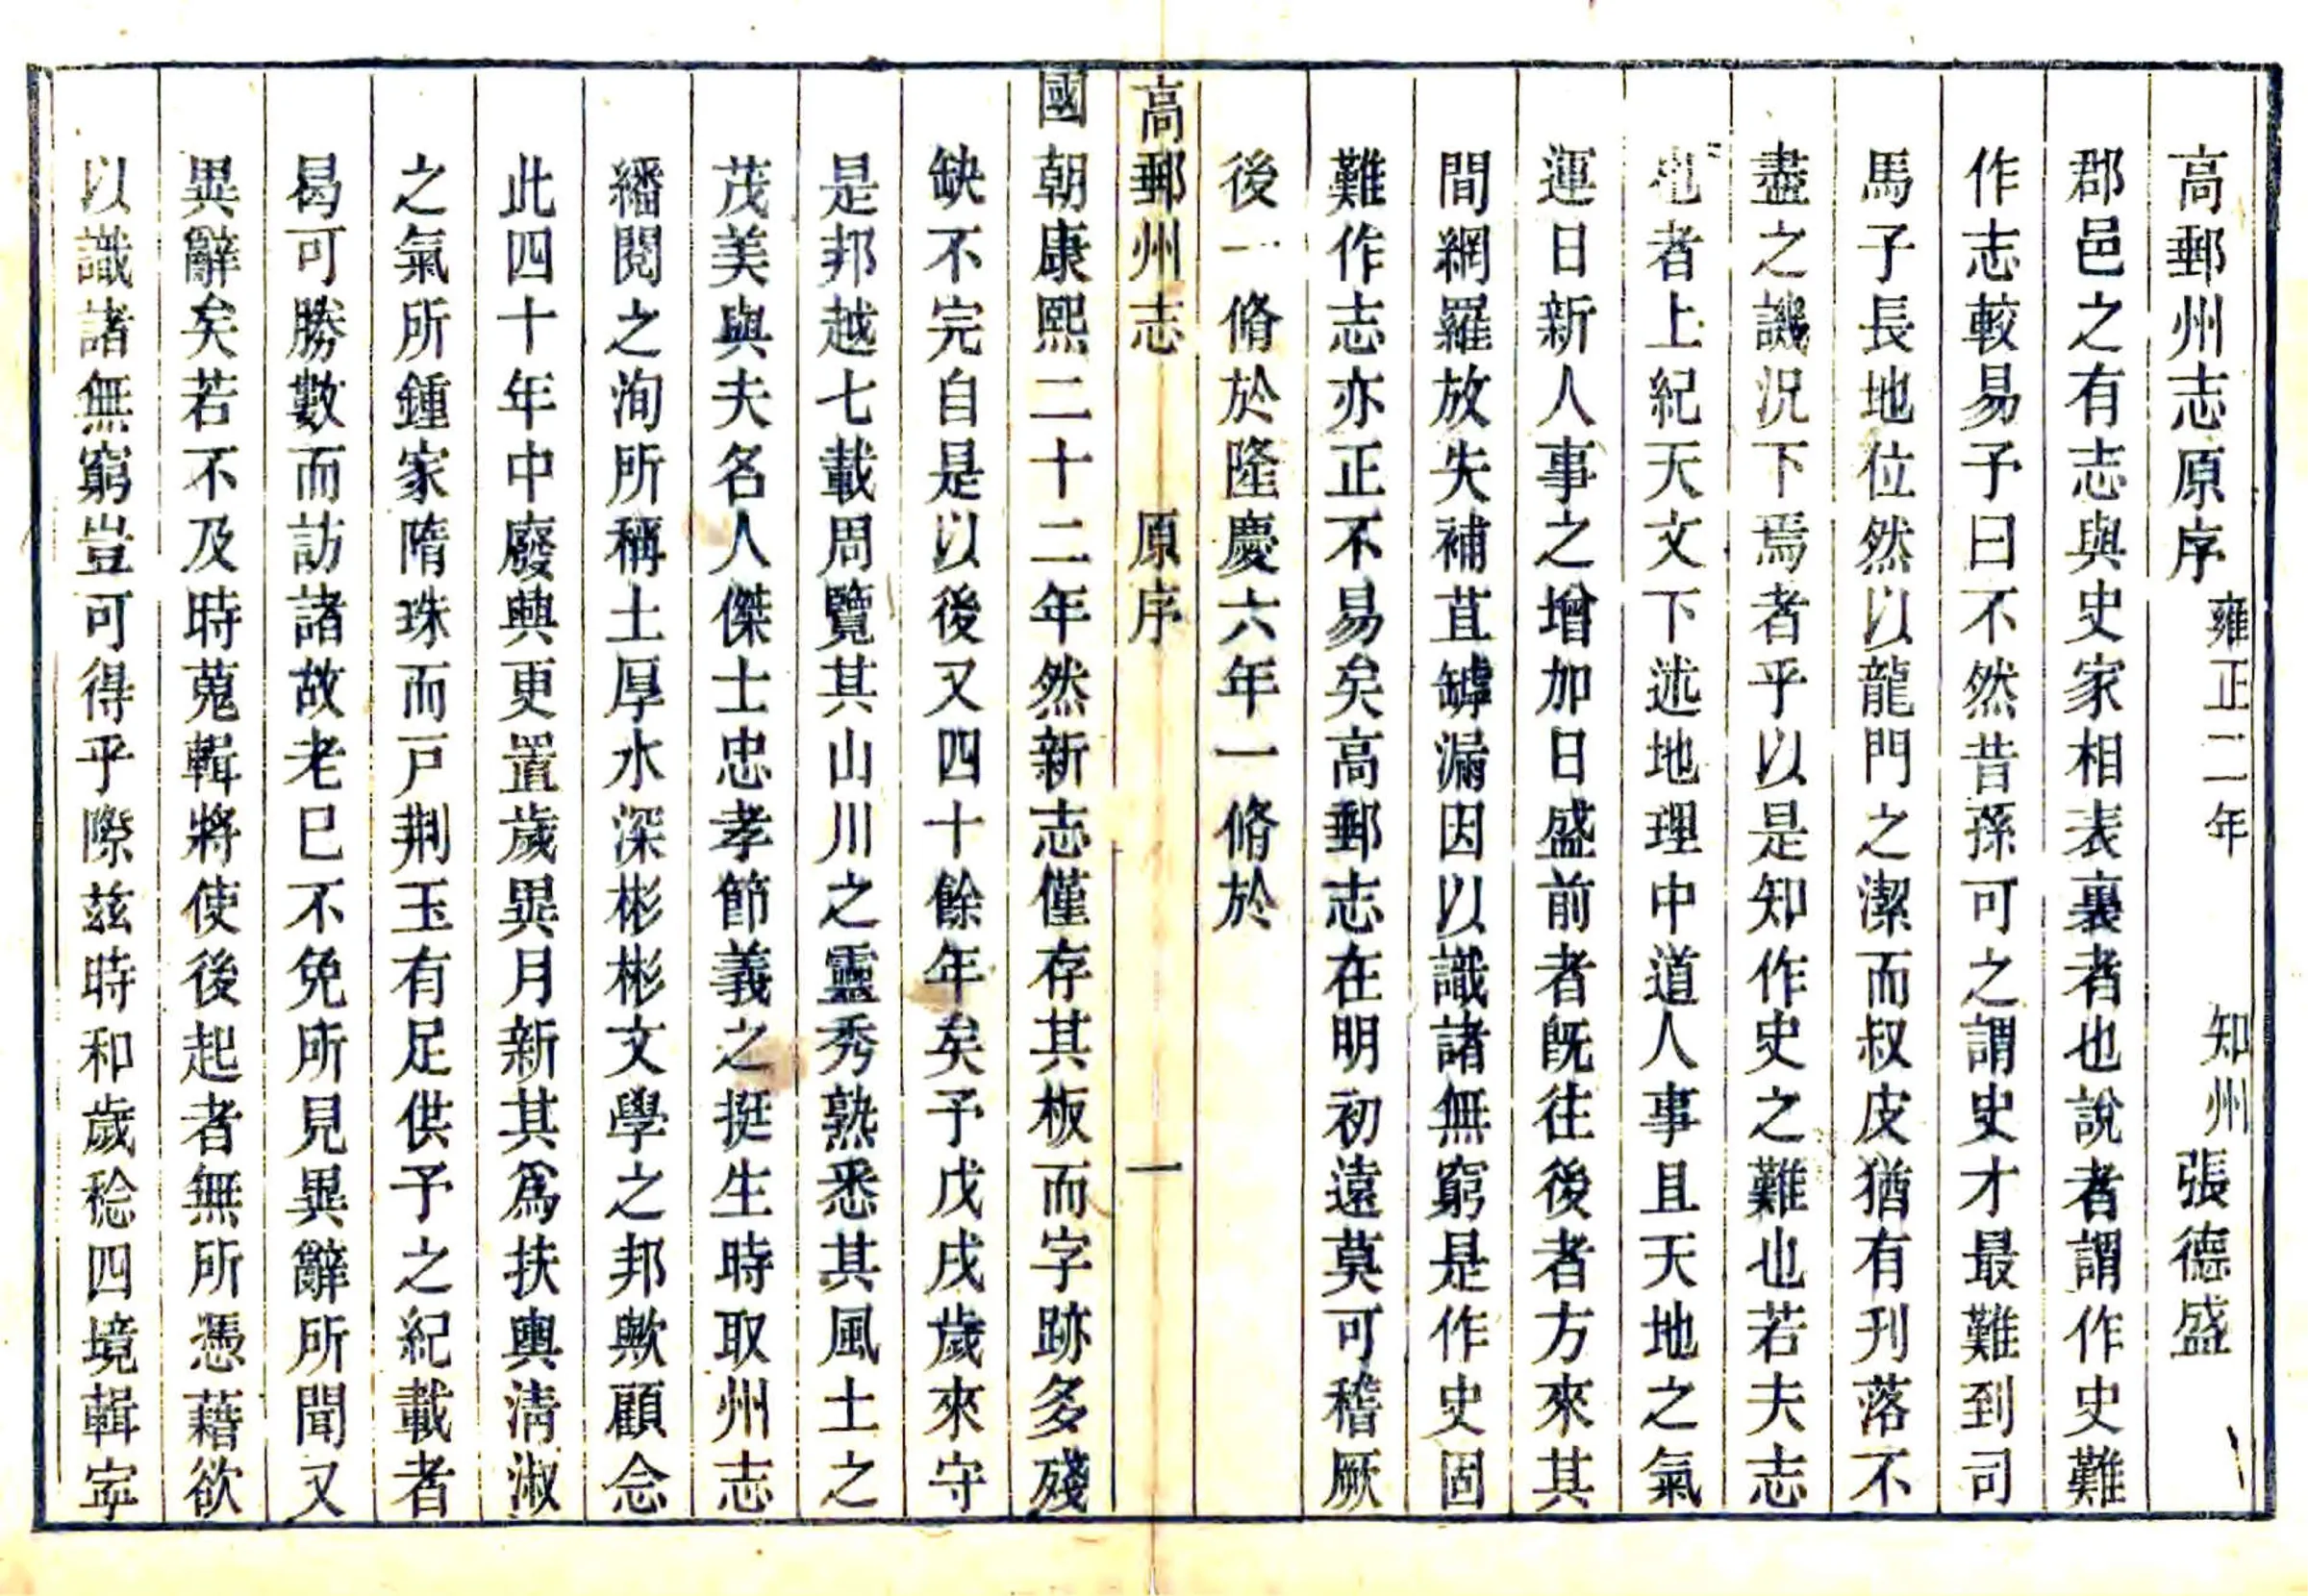 高郵州志原序 雍正二年 知州張德盛
郡邑之有志與史家相表裏者也說者謂作史難
作志較易予曰不然昔孫可之謂史才最難到司
馬子長地位然以龍門之潔而叔皮猶有刊落不
盡之譏況下焉者乎以是知作史之難也若夫志
者上紀天文下述地理中道人事且天地之氣
運日新人事之增加日盛前者旣往後者方來其
間網羅放失補苴罅漏因以識諸無窮是作史固
難作志亦正不易矣高郵志在明初遠莫可稽厥
後一脩於隆慶六年一脩於
高郵州志 原序 一
國朝康熙二十二年然新志僅存其板而字跡多殘
缺不完自是以後又四十餘年矣予戊戌歲來守
是邦越七載周覽其山川之靈秀熟悉其風土之
茂美與夫名人傑士忠孝節義之挺生時取州志
繙閱之洵所稱土厚水深彬彬文學之邦歟顧念
此四十年中廢興更置歲異月新其爲扶輿清淑
之氣所鍾家隋珠而戸荆玉有足供予之紀載者
曷可勝數而訪諸故老巳不免所見異辭所聞又
異辭矣若不及時蒐輯將使後起者無所憑藉欲
以識諸無窮豈可得乎際玆時和歲稔四境輯寍